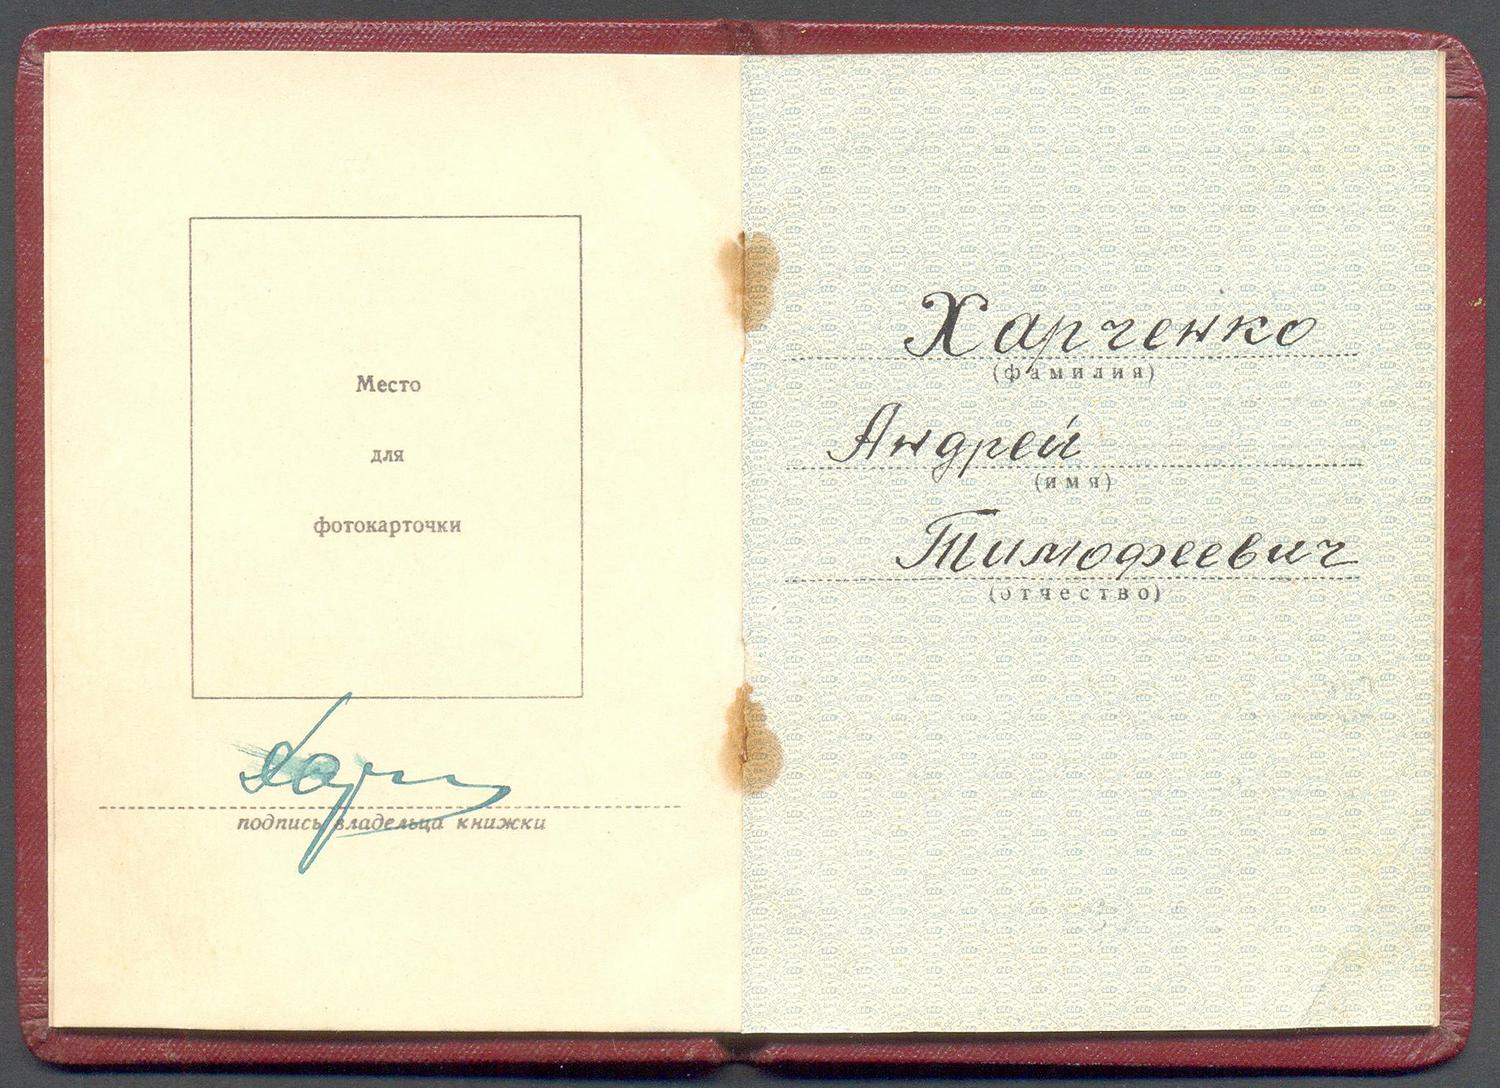 Место
для
фотокарточки
подпись владельца книжки
Харченко
(фамилия)
Андрей
(имя)
Тимофеевич
(отчество)